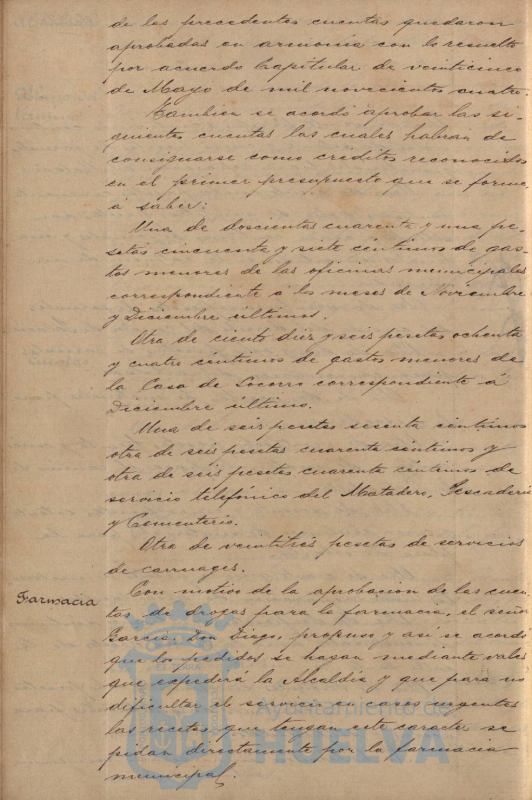 de las precedentes cuentas quedaron
aprobadas en armonía con lo resuelto
por acuerdo Capitular de veinticinco
de Mayo de mil novecientos cuatro.
Tambien se acordó aprobar las si-
guientes cuentas las cuales habrán de
consignarse como créditos reconocidos
en el primer presupuesto que se forme,
á saber:
Una de doscientas cuarenta y una pe-
setas cincuenta y siete céntimos de gas-
tos menores de las oficinas municipales
correspondiente á los meses de Noviembre
y Diciembre últimos.
Otra de ciento diez y seis pesetas ochenta
y cuatro céntimos de gastos menores de
la Casa de Socorro correspondiente á
Diciembre último.
Una de seis pesetas sesenta céntimos
otra de seis pesetas cuarenta céntimos y
otra de seis pesetas cuarenta céntimos de
servicio telefónico del Matadero, Pescadería
y Cementerio.
Otra de veintitrés pesetas de servicios
de carruages.
Farmacia
Con motivo de la aprobacion de las cuen-
tas de drogas para la farmacia, el señor
García, Don Diego, propuso y así se acordó
que los pedidos se hagan mediante vales
que expederá la Alcaldía y que para no
dificultar el servicio en casos urgentes
las recetas que tengan este caracter se
pidan directamente por la farmacia
municipal.
Ayuntamiento de
HUELVA